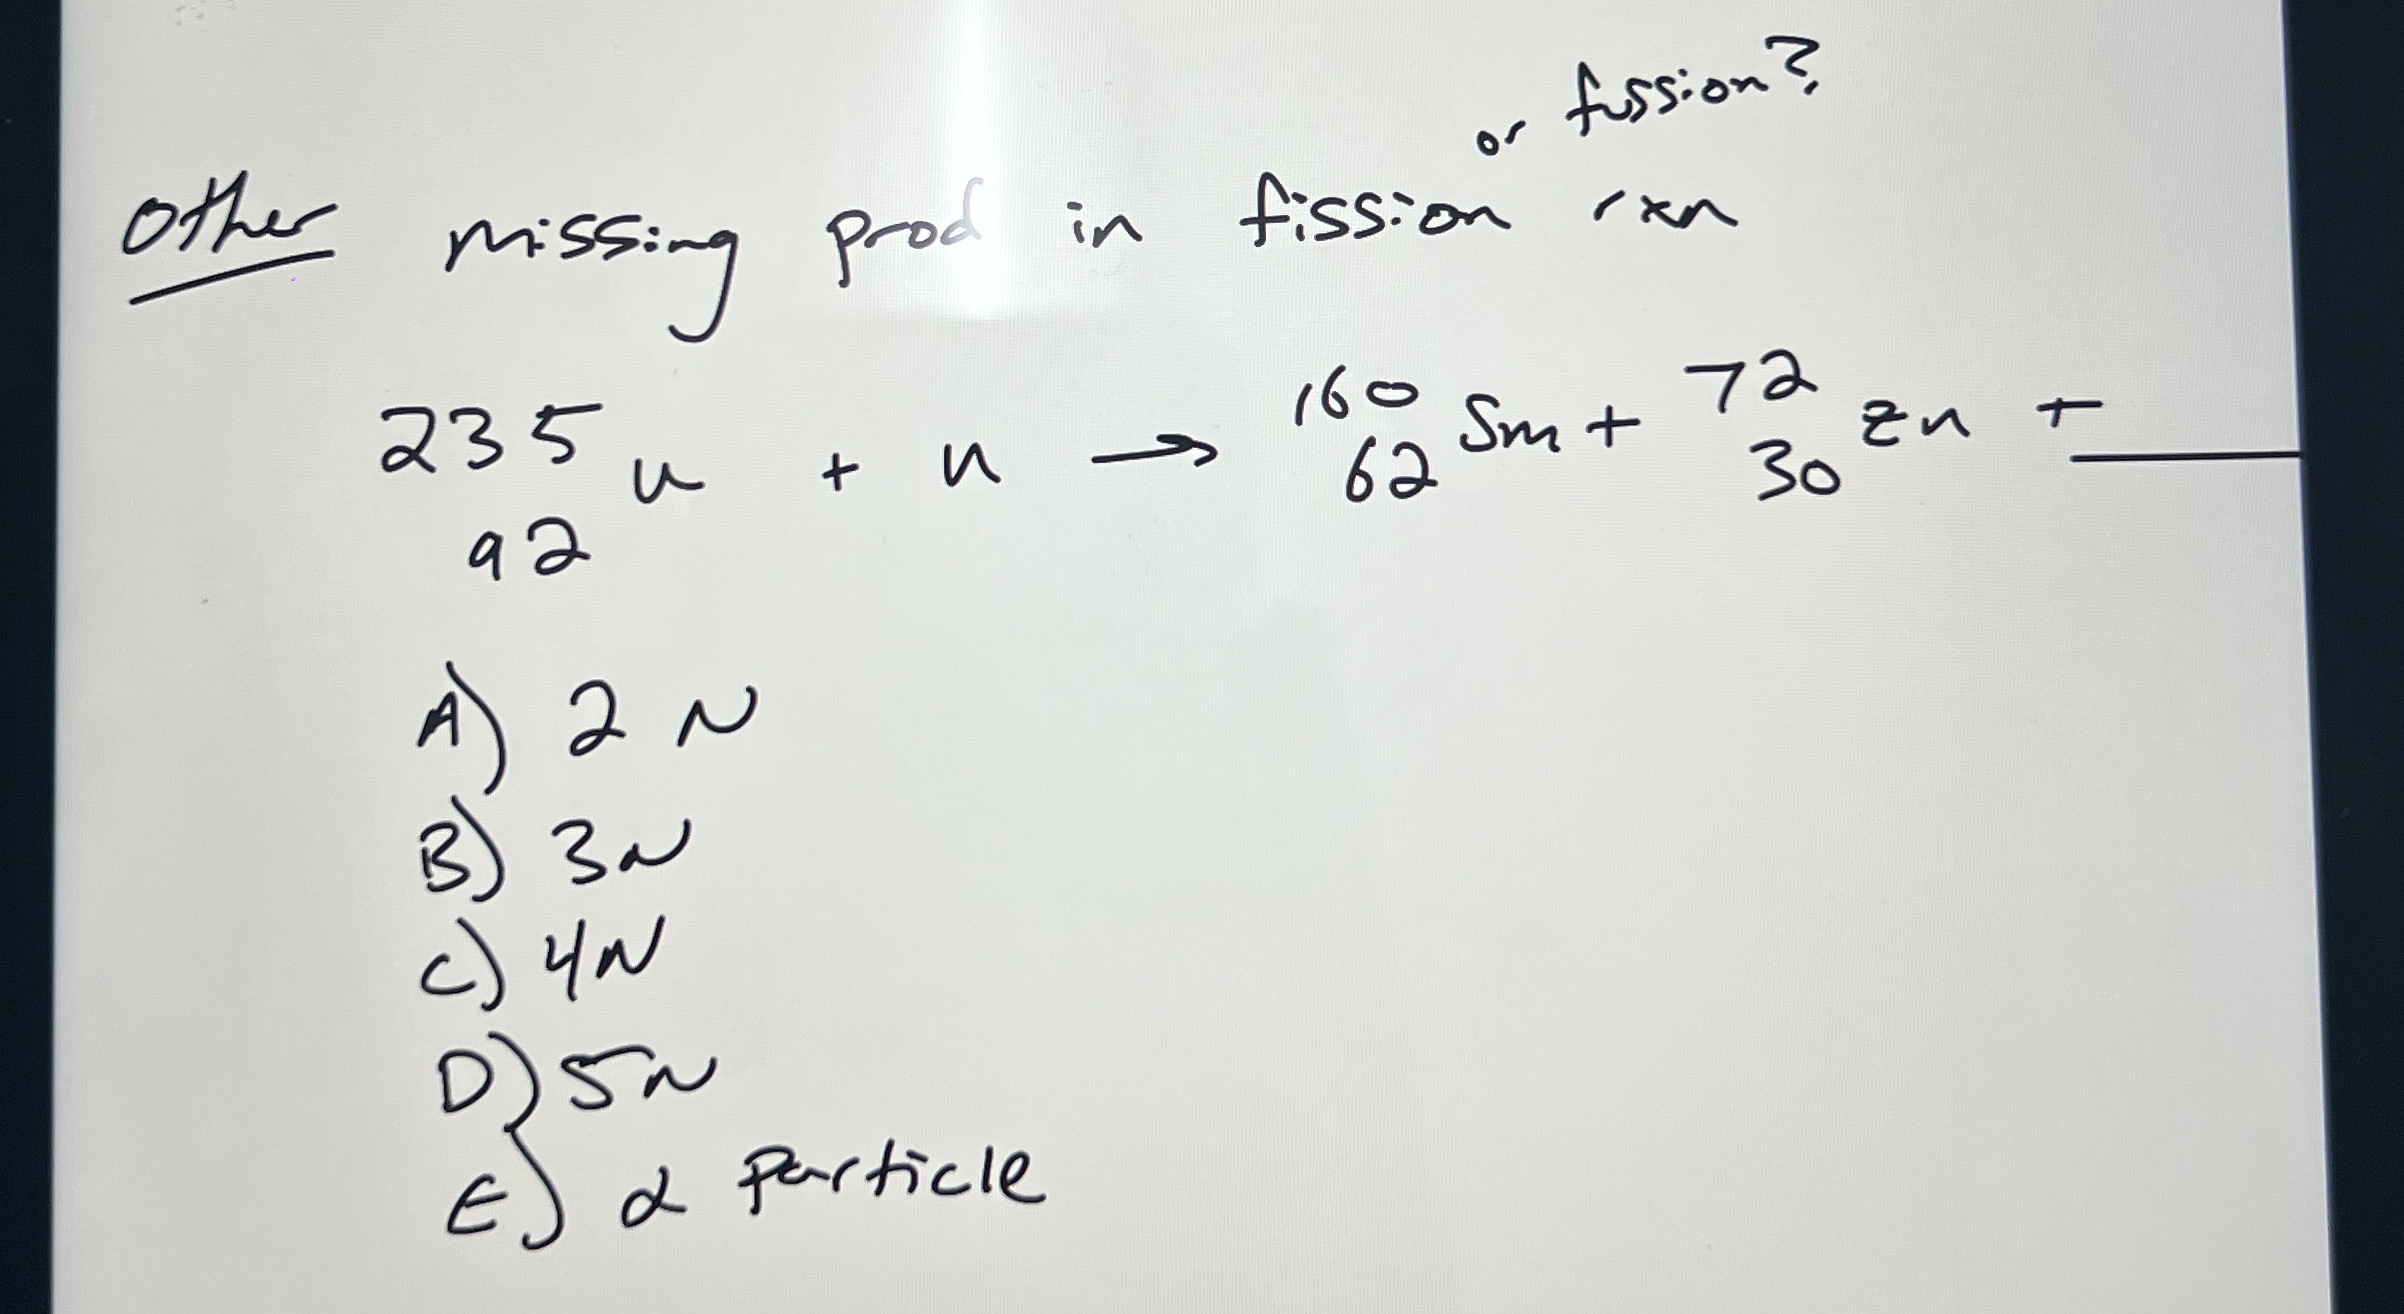 or fussion?
Other missing prod in fission rxn
235 160 72
U + n → Sm + Zn + ___
92 62 30
A) 2 N
B) 3N
C) 4N
D) 5N
E) α Particle